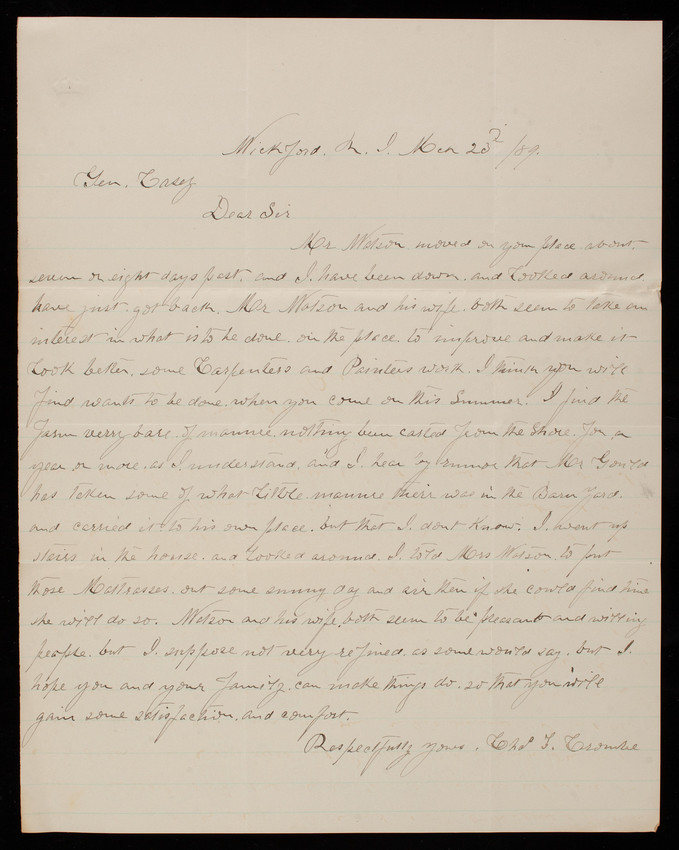 Wickford. R. I. Mch 23d /89.
Gen. Casey
Dear Sir
Mr Watson moved on your place about
seven or eight days past. and I have been down. and Looked around
have just got back. Mr Watson and his wife. both seem to take an
interest in what is to be done. on the place. to improve and make it
Look better. some Carpenters and Painters work. I think you will
find wants to be done. when you come on this Summer. I find the
Farm verry bare. of manure. nothing been carted from the Shore. for a
year or more. as I understand. and I hear by rumor that Mr Gould
has taken some of what Little manure their was in the Barn Yard.
and carried it to his own place. but that I. dont Know. I went up
stairs in the house. and Looked around. I told Mrs Watson. to put
those Mattrasses. out some sunny day and air then if she could find time
she will do so. Watson and his wife both seem to be pleasant and willing
people. but I. suppose not very refined. as some would say. but I.
hope you and your Family. can make things do. so that you will
gain some satisfaction. and comfort.
Respectfully yours. Chas T. Crombe